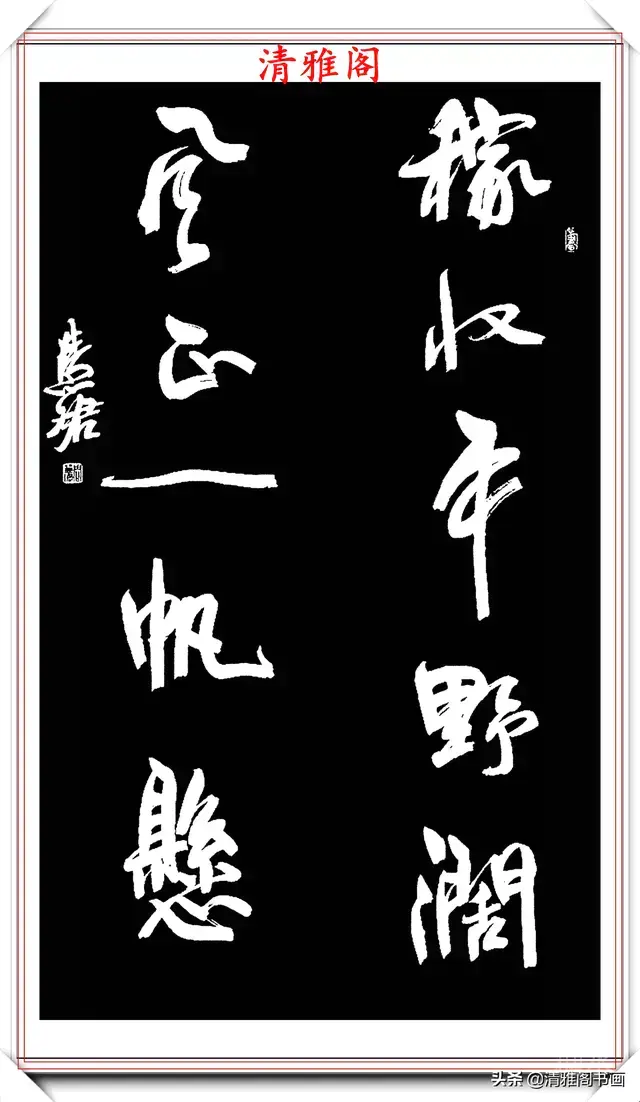 清雅阁
稼收平野濶
風正一帆懸
慧珺
头条 @清雅阁书画